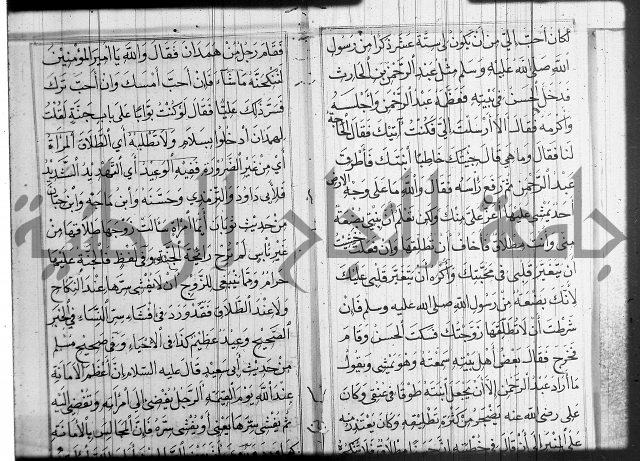 أكان أحب إلي من أن يكون لي ستة عشر ذكرا من رسول
الله صلى الله عليه وسلم مثل عبد الرحمن بن الحارث
فدخل الحسن في بيته فعظمه عبد الرحمن واجلسه
واكرمه فقال الا ارسلت الي فكنت آتيك فقال الحاجة
لنا فقال وما هي قال جئتك خاطبا ابنتك فأطرق
عبد الرحمن ثم رفع رأسه فقال والله ما على وجه الارض
احد يمشي عليها أعز علي منك ولكن تعلم أن بنتي بضعة
مني وأنت مطلاق فأخاف أن تطلقها وان فعلت خشيت
أن يتغير قلبي في محبتك وأكره أن يتغير قلبي عليك
لأنك بضعة من رسول الله صلى الله عليه وسلم فان
شرطت أن لا تطلقها زوجتك فسكت الحسن وقام
فخرج فقال بعض أهل بيته سمعته وهو يمشي ويقول
ما أراد عبد الرحمن الا أن يجعل ابنته طوقا في عنقي وكان
علي رضي الله عنه يضجر من كثرة تطليقه وكان يعتذر منه
على المنبر
فقام رجل من همدان فقال والله يا أمير المؤمنين
لننكحنه ما شاء فان أحب أمسك وان أحب ترك
فسر ذلك عليا فقال لو كنت بوابا على باب جنة لقلت
لهمدان أدخلوا بسلام ولا تطلبه أي الطلاق المرأة
أي من غير الضرورة ففيه الوعيد أي التهديد الشديد
فلأبي داود والترمذي وحسنه وابن ماجه وابن حبان
من حديث ثوبان أيما امرأة سألت زوجها طلاقها من
غير بأس لم ترح رائحة الجنة وفي لفظ فالجنة عليها
حرام ومما ينبغي للزوج ان لا يفشي سرها عند النكاح
ولا عند الطلاق فقد ورد في افشاء سر النساء في الخبر
الصحيح وعيد عظيم كذا في الاحياء وفي صحيح مسلم
من حديث أبي سعيد قال عليه السلام ان أعظم الأمانة
عند الله يوم القيمة الرجل يفضي الى امرأته وتفضي اليه
ثم يفشي سرها يعني أو يفشي سره فإن المجالس بالأمانة
جامعة النجاح الوطنية